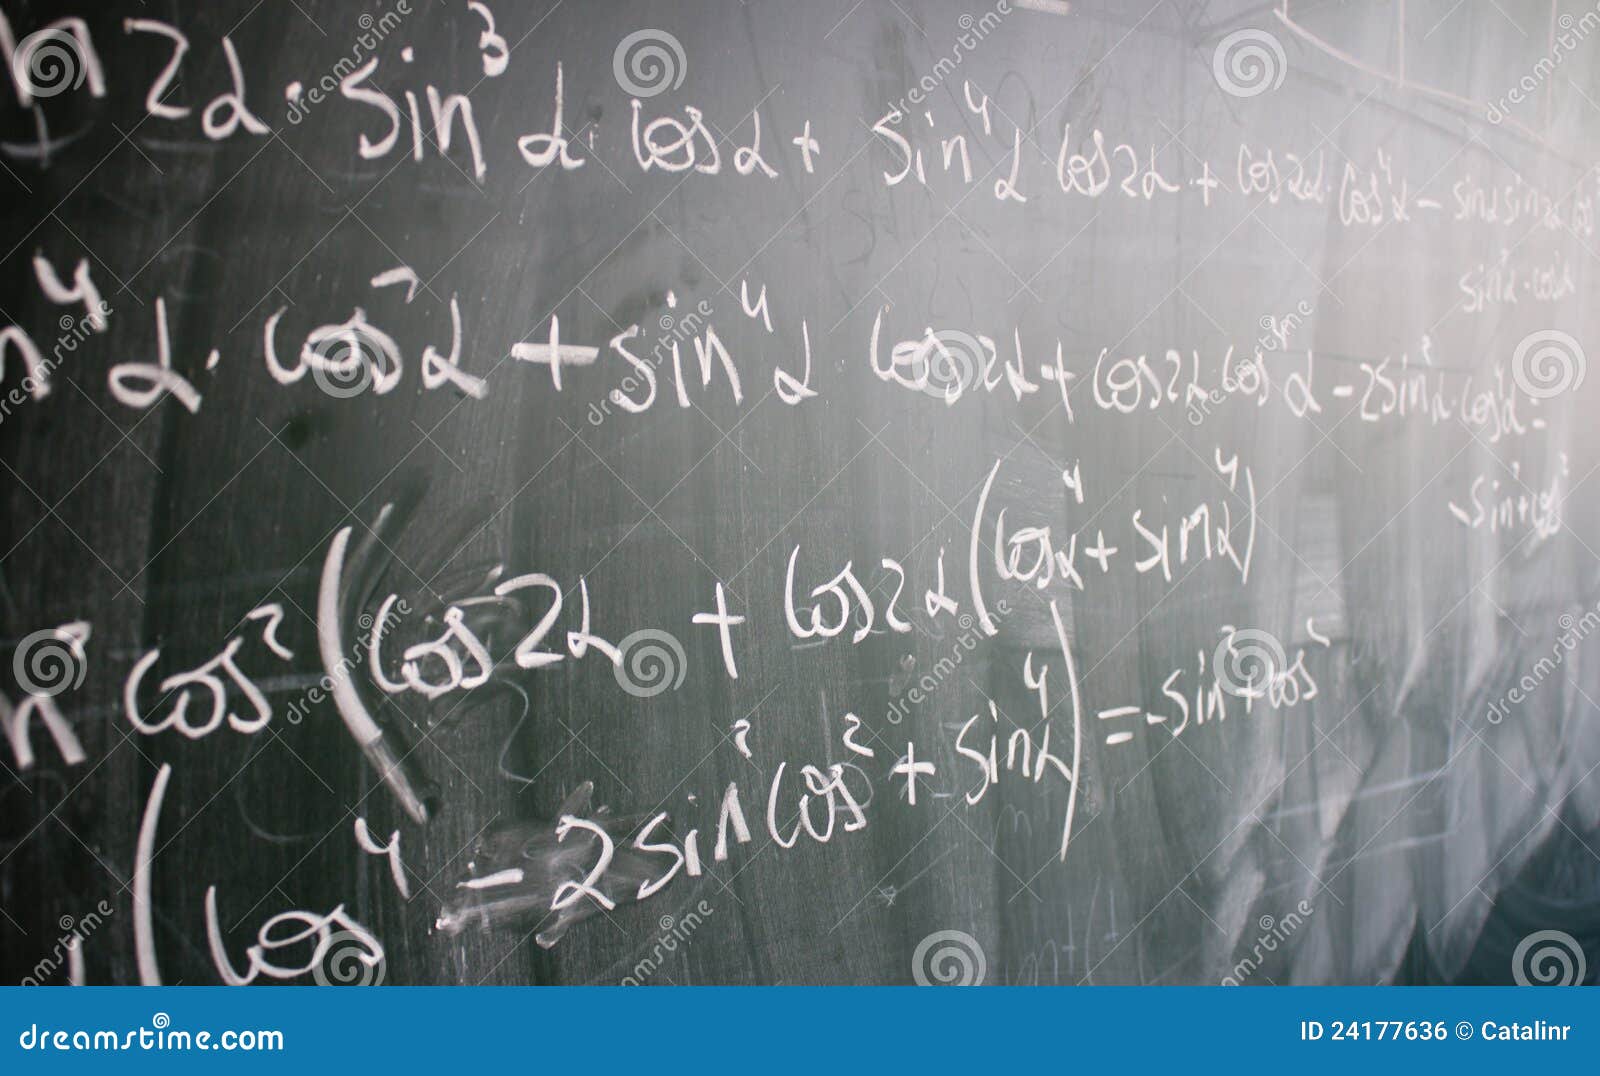 n 2α · sin³ α · cos α + sin⁴ α cos 2α + cos 2α · cos⁴ α - sin α sin 2α cos
sin²α · cos²α
n⁴ α · cos² α + sin⁴ α cos 2α + cos 2α cos⁴ α - 2 sin²α · cos²α =
- sin² + cos²
n² cos² (cos 2α + cos 2α (cos⁴α + sin⁴α)
(cos⁴ - 2 sin² cos² + sin⁴α) = - sin² + cos²
dreamstime.com
ID 24177636 © Catalinr